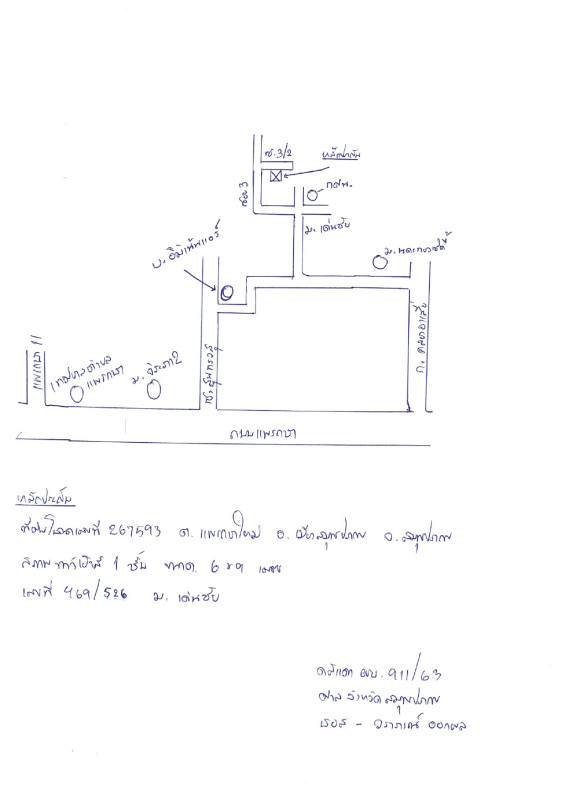 ซ.3/2
หลักประกัน
ซอย 3
กศน.
ม. เด่นชัย
บ. อิมิเน้นแอร์
ถ. ตลาดอาเสี่ย
แพรกษา 11
เทศบาลตำบล
แพรกษา
ม. จิระภา 2
ถนนแพรกษา
หลักประกัน
ที่ดินโฉนดเลขที่ 267593 ต. แพรกษาใหม่ อ. เมืองสมุทรปราการ จ. สมุทรปราการ
สภาพ ทาวน์เฮ้าส์ 1 ชั้น ขนาด
เลขที่ 469/526 ม. เด่นชัย
คดีแดง ผบ. 911/63
ศาล จังหวัดสมุทรปราการ
วราภรณ์